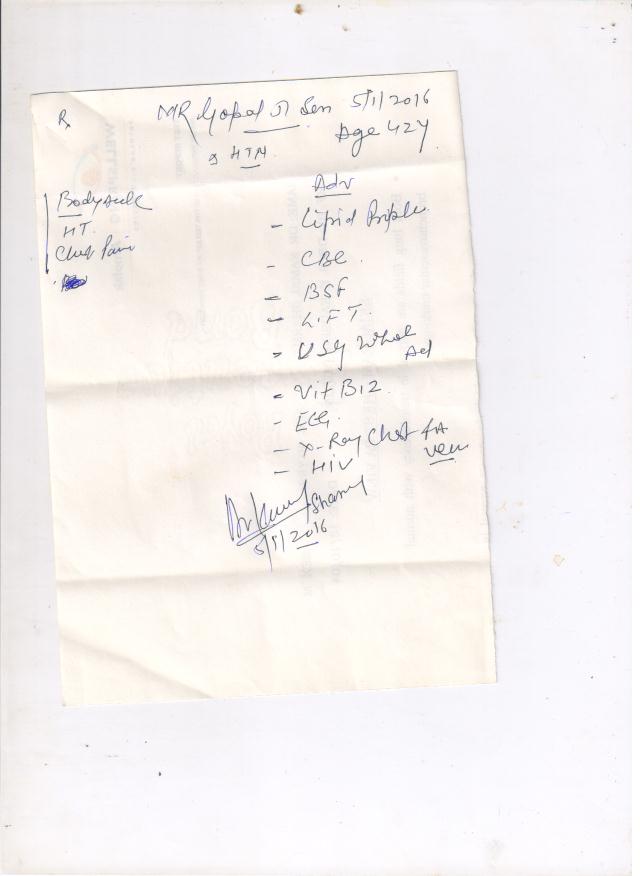 Rx MR Gopal Ji Sen 5/1/2016
Age 42Y
HTN
Bodyache
HT.
Chest Pain
Adv
- Lipid Profile
- CBC
- BSF
- L.F.T.
- USG Whole
Ad
- Vit B12
- ECG.
- X-Ray Chest PA
view
- HIV
Sharma
5/1/2016